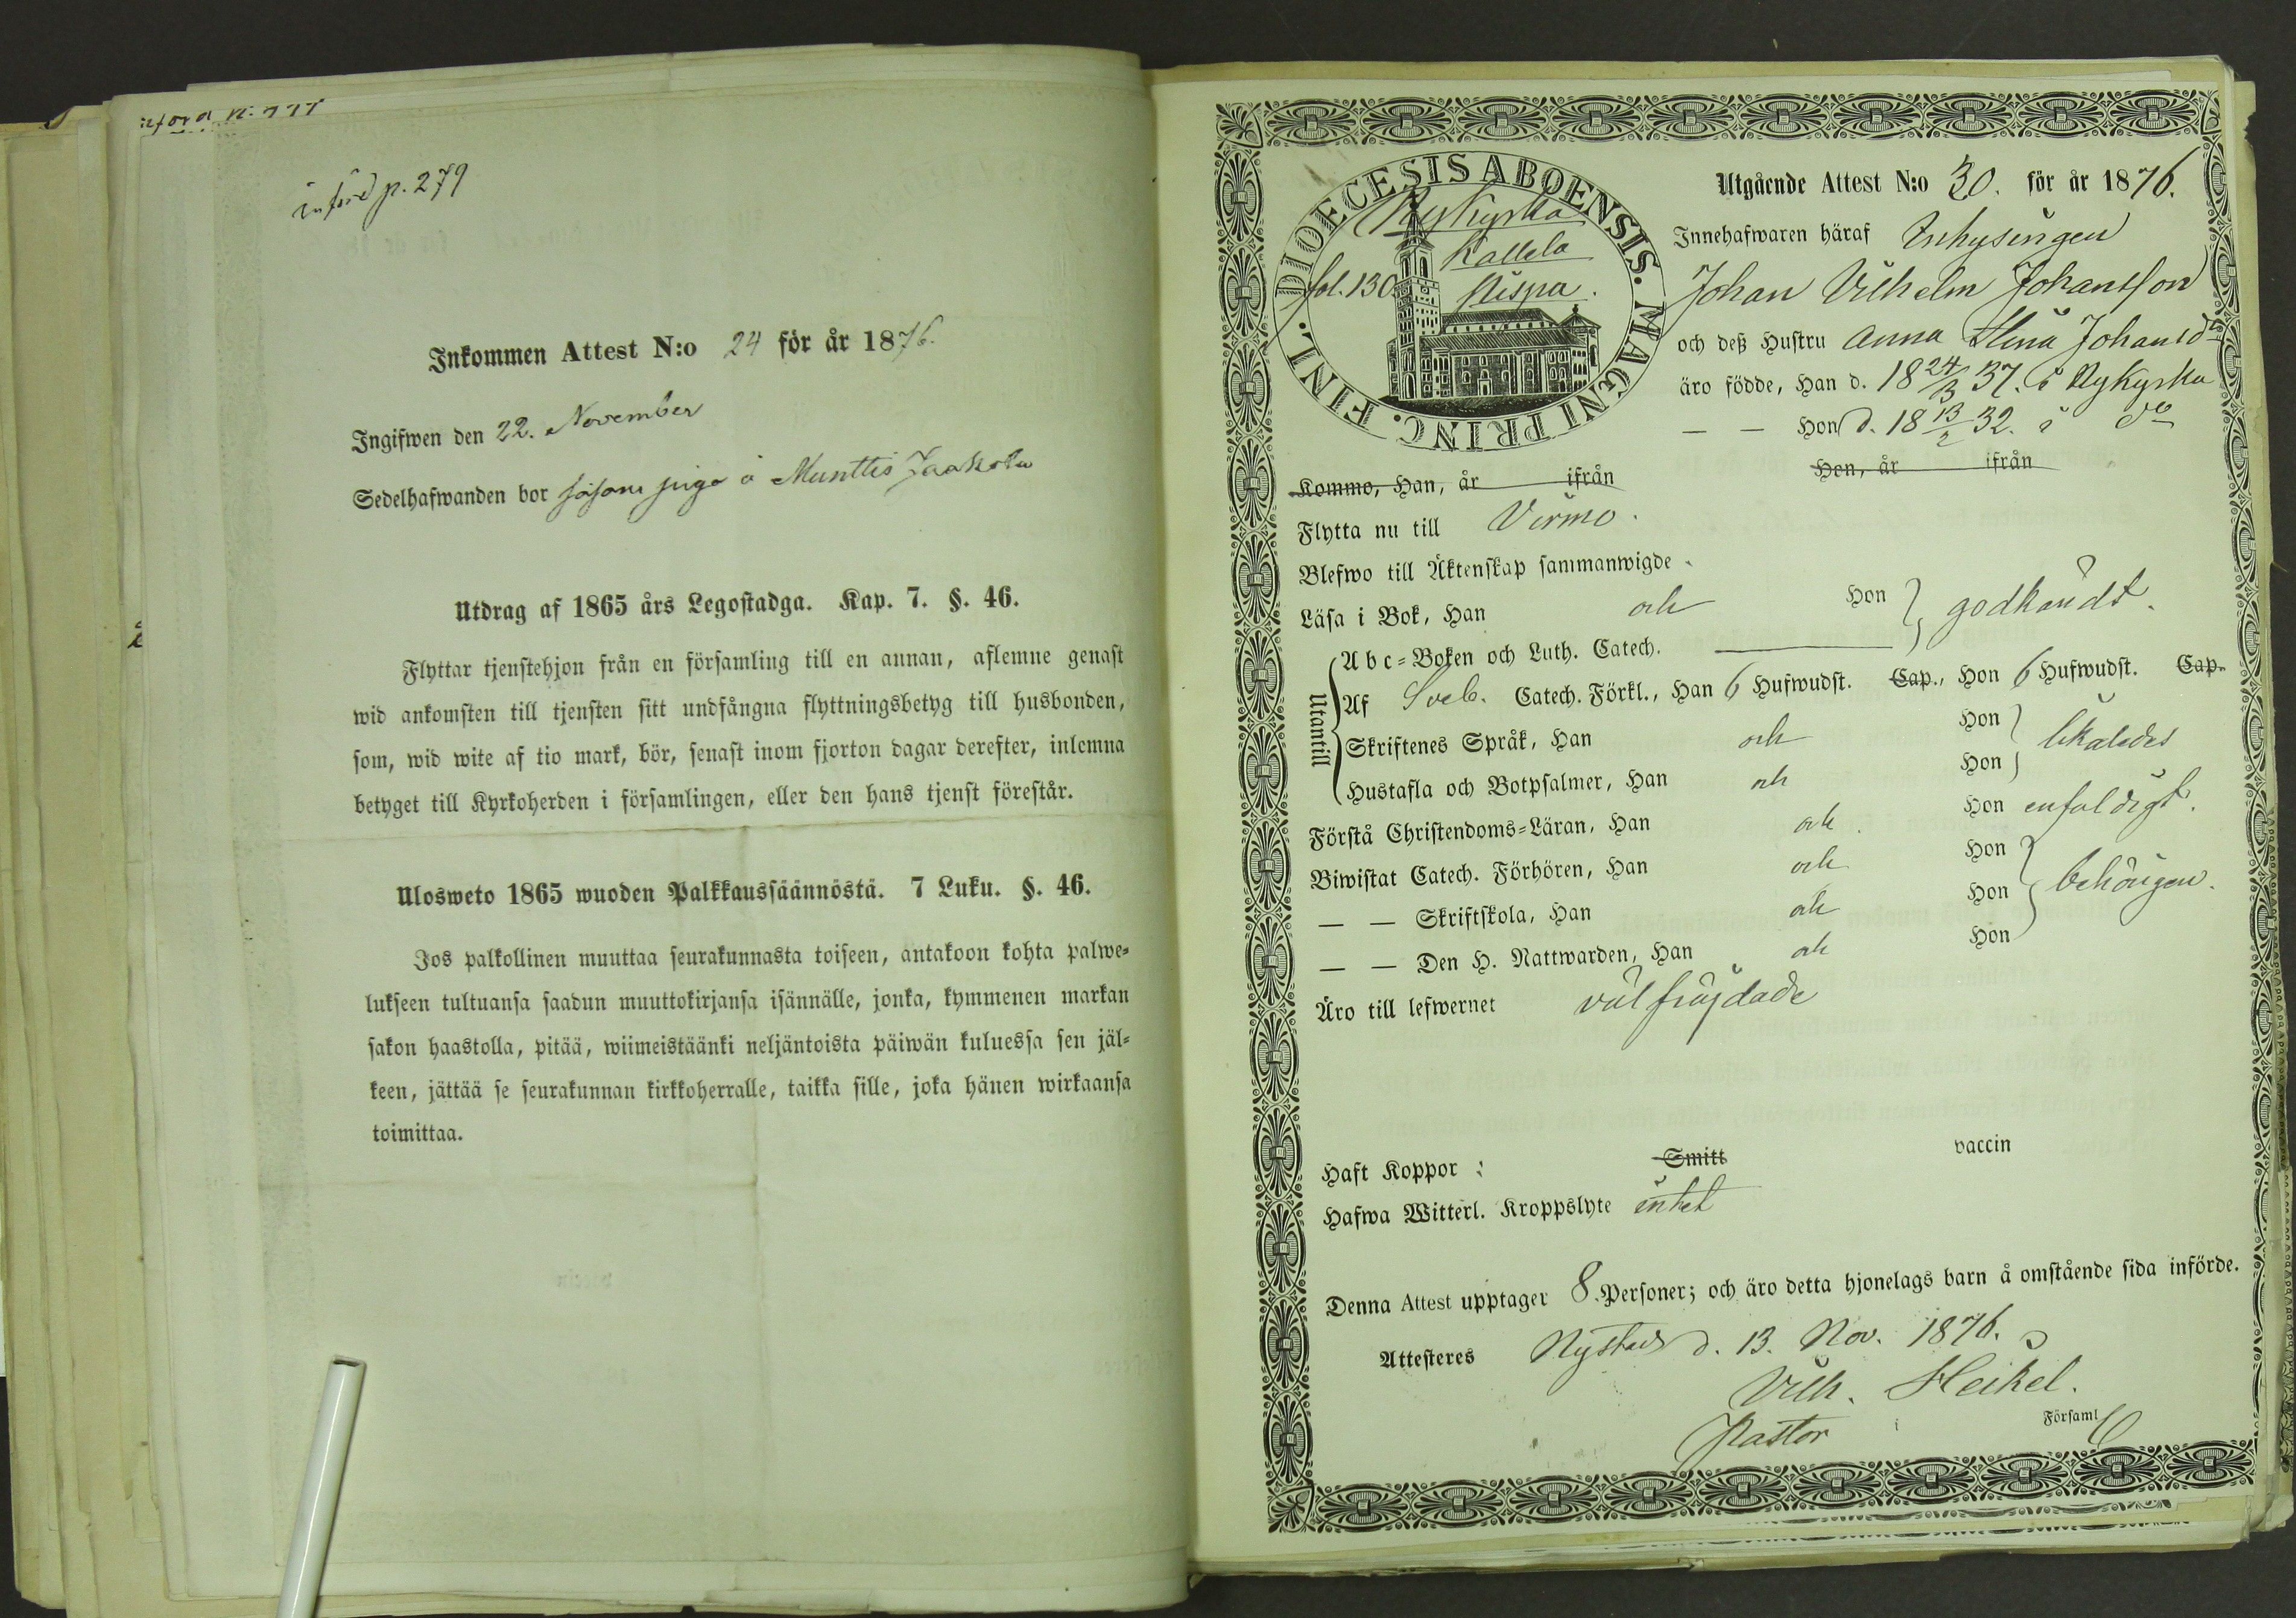 införd p. 279
Inkommen Attest N:o 24 för år 1876.
Ingifwen den 22. November
Sedelhafwanden bor såsom piga å Munttis Jaakola
Utdrag af 1865 års Legostadga. Kap. 7. §. 46.
Flyttar tjenstehjon från en församling till en annan, aflemne genast
wid ankomsten till tjensten sitt undfångna flyttningsbetyg till husbonden,
som, wid wite af tio mark, bör, senast inom fjorton dagar derefter, inlemna
betyget till Kyrkoherden i församlingen, eller den hans tjenst förestår.
Ulosweto 1865 wuoden Palkkaussäännöstä. 7 Luku. §. 46.
Jos palkollinen muuttaa seurakunnasta toiseen, antakoon kohta palwe-
lukseen tultuansa saadun muuttokirjansa isännälle, jonka, kymmenen markan
sakon haastolla, pitää, wiimeistäänki neljäntoista päiwän kuluessa sen jäl-
keen, jättää se seurakunnan kirkkoherralle, taikka sille, joka hänen wirkaansa
toimittaa.
DIOECESIS ABOENSIS. MAGNI PRINC. FINL.
Nykyrka
Kallela
fol. 130
Utgående Attest N:o 30. för år 1876.
Innehafwaren häraf Inhysingen
Johan Vilhelm Johansson
och deß Hustru Anna Stina Johansdr
äro födde, Han d. 18 24/3 37. i Nykyrka
— — Hon d. 18 13/2 32. i do
Kommo, Han, år ifrån Hon, år ifrån
Flytta nu till Virmo.
Blefwo till Äktenskap sammanwigde
Läsa i Bok, Han och Hon } godkändt.
Utantill
Abc-Boken och Luth. Catech.
Af Sveb. Catech. Förkl., Han 6 Hufwudst. Cap., Hon 6 Hufwudst. Cap.
Skriftenes Språk, Han och Hon } likaledes
Hustafla och Botpsalmer, Han och Hon
Förstå Christendoms-Läran, Han och Hon enfaldigt.
Biwistat Catech. Förhören, Han och Hon } behörigen.
— — Skriftskola, Han och Hon
— — Den H. Nattwarden, Han och Hon
Äro till lefwernet välfräjdade
Haft Koppor: Smitt vaccin
Hafwa Witterl. Kroppslyte intet
Denna Attest upptager 8 Personer; och äro detta hjonelags barn å omstående sida införde.
Attesteres Nystad d. 13. Nov. 1876.
Vilh. Heikel.
Pastor i Församl